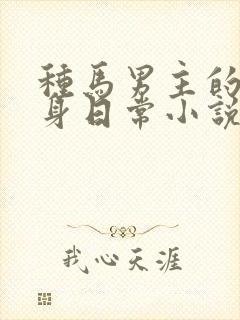 種馬男主的
身日常小說
我心天涯